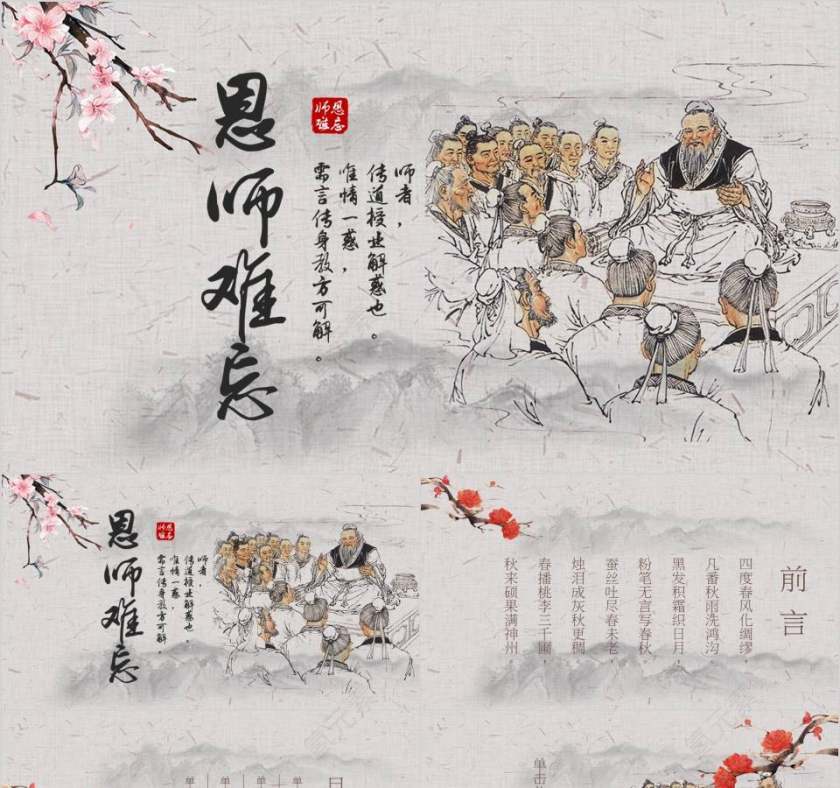 恩师难忘
恩师
忘难
师者，
传道授业解惑也。
唯情一惑，
需言传身教方可解。
恩师难忘
恩师
忘难
师者，
传道授业解惑也。
唯情一惑，
需言传身教方可解。
前言
四度春风化绸缪，
几番秋雨洗鸿沟，
黑发积霜织日月，
粉笔无言写春秋，
蚕丝吐尽春未老，
烛泪成灰秋更稠
春播桃李三千圃，
秋来硕果满神州，
单
单
单
单
单击